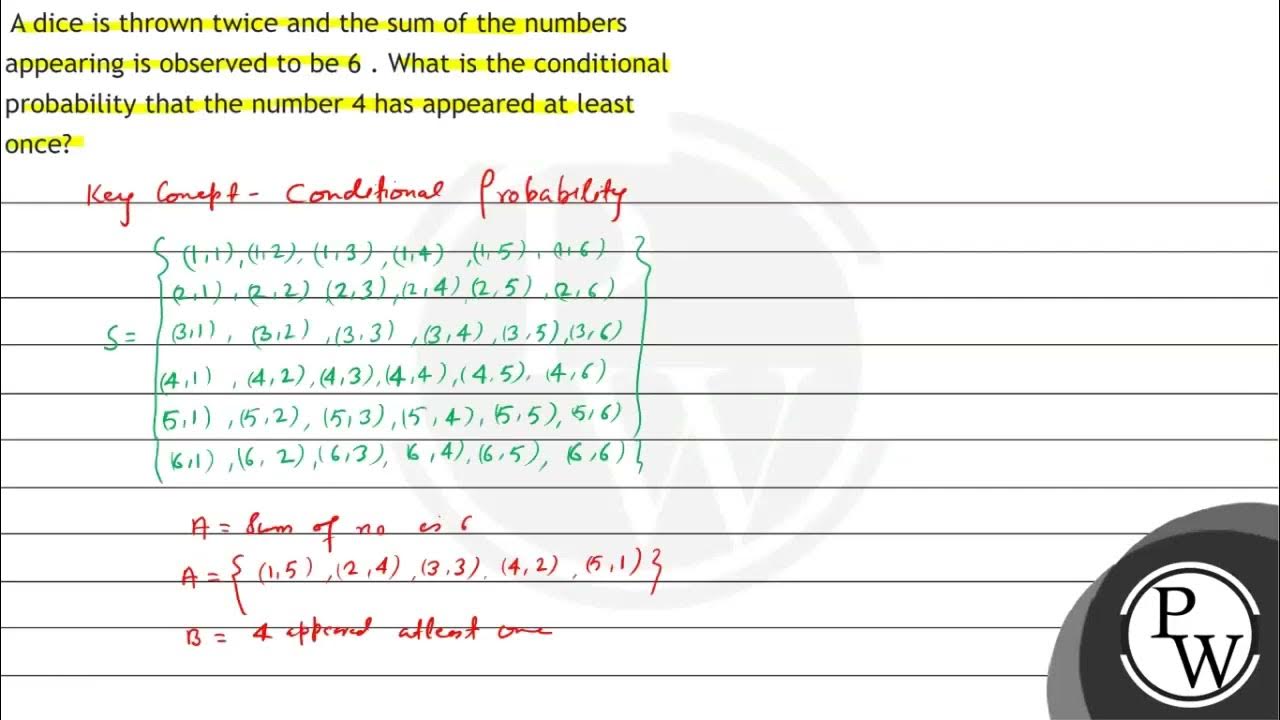 A dice is thrown twice and the sum of the numbers
appearing is observed to be 6 . What is the conditional
probability that the number 4 has appeared at least
once?
Key Concept - Conditional Probability
{ (1,1), (1,2), (1,3), (1,4) , (1,5) , (1,6) }
(2,1) , (2,2) (2,3), (2,4), (2,5) , (2,6)
S = (3,1) , (3,2) , (3,3) , (3,4) , (3,5), (3,6)
(4,1) , (4,2), (4,3), (4,4), (4,5), (4,6)
(5,1) , (5,2), (5,3), (5,4), (5,5), (5,6)
(6,1) , (6,2), (6,3), (6,4), (6,5), (6,6)
A = Sum of no is 6
A = { (1,5) , (2,4) , (3,3), (4,2) , (5,1) }
B = 4 appeared atleast one
PW
PW